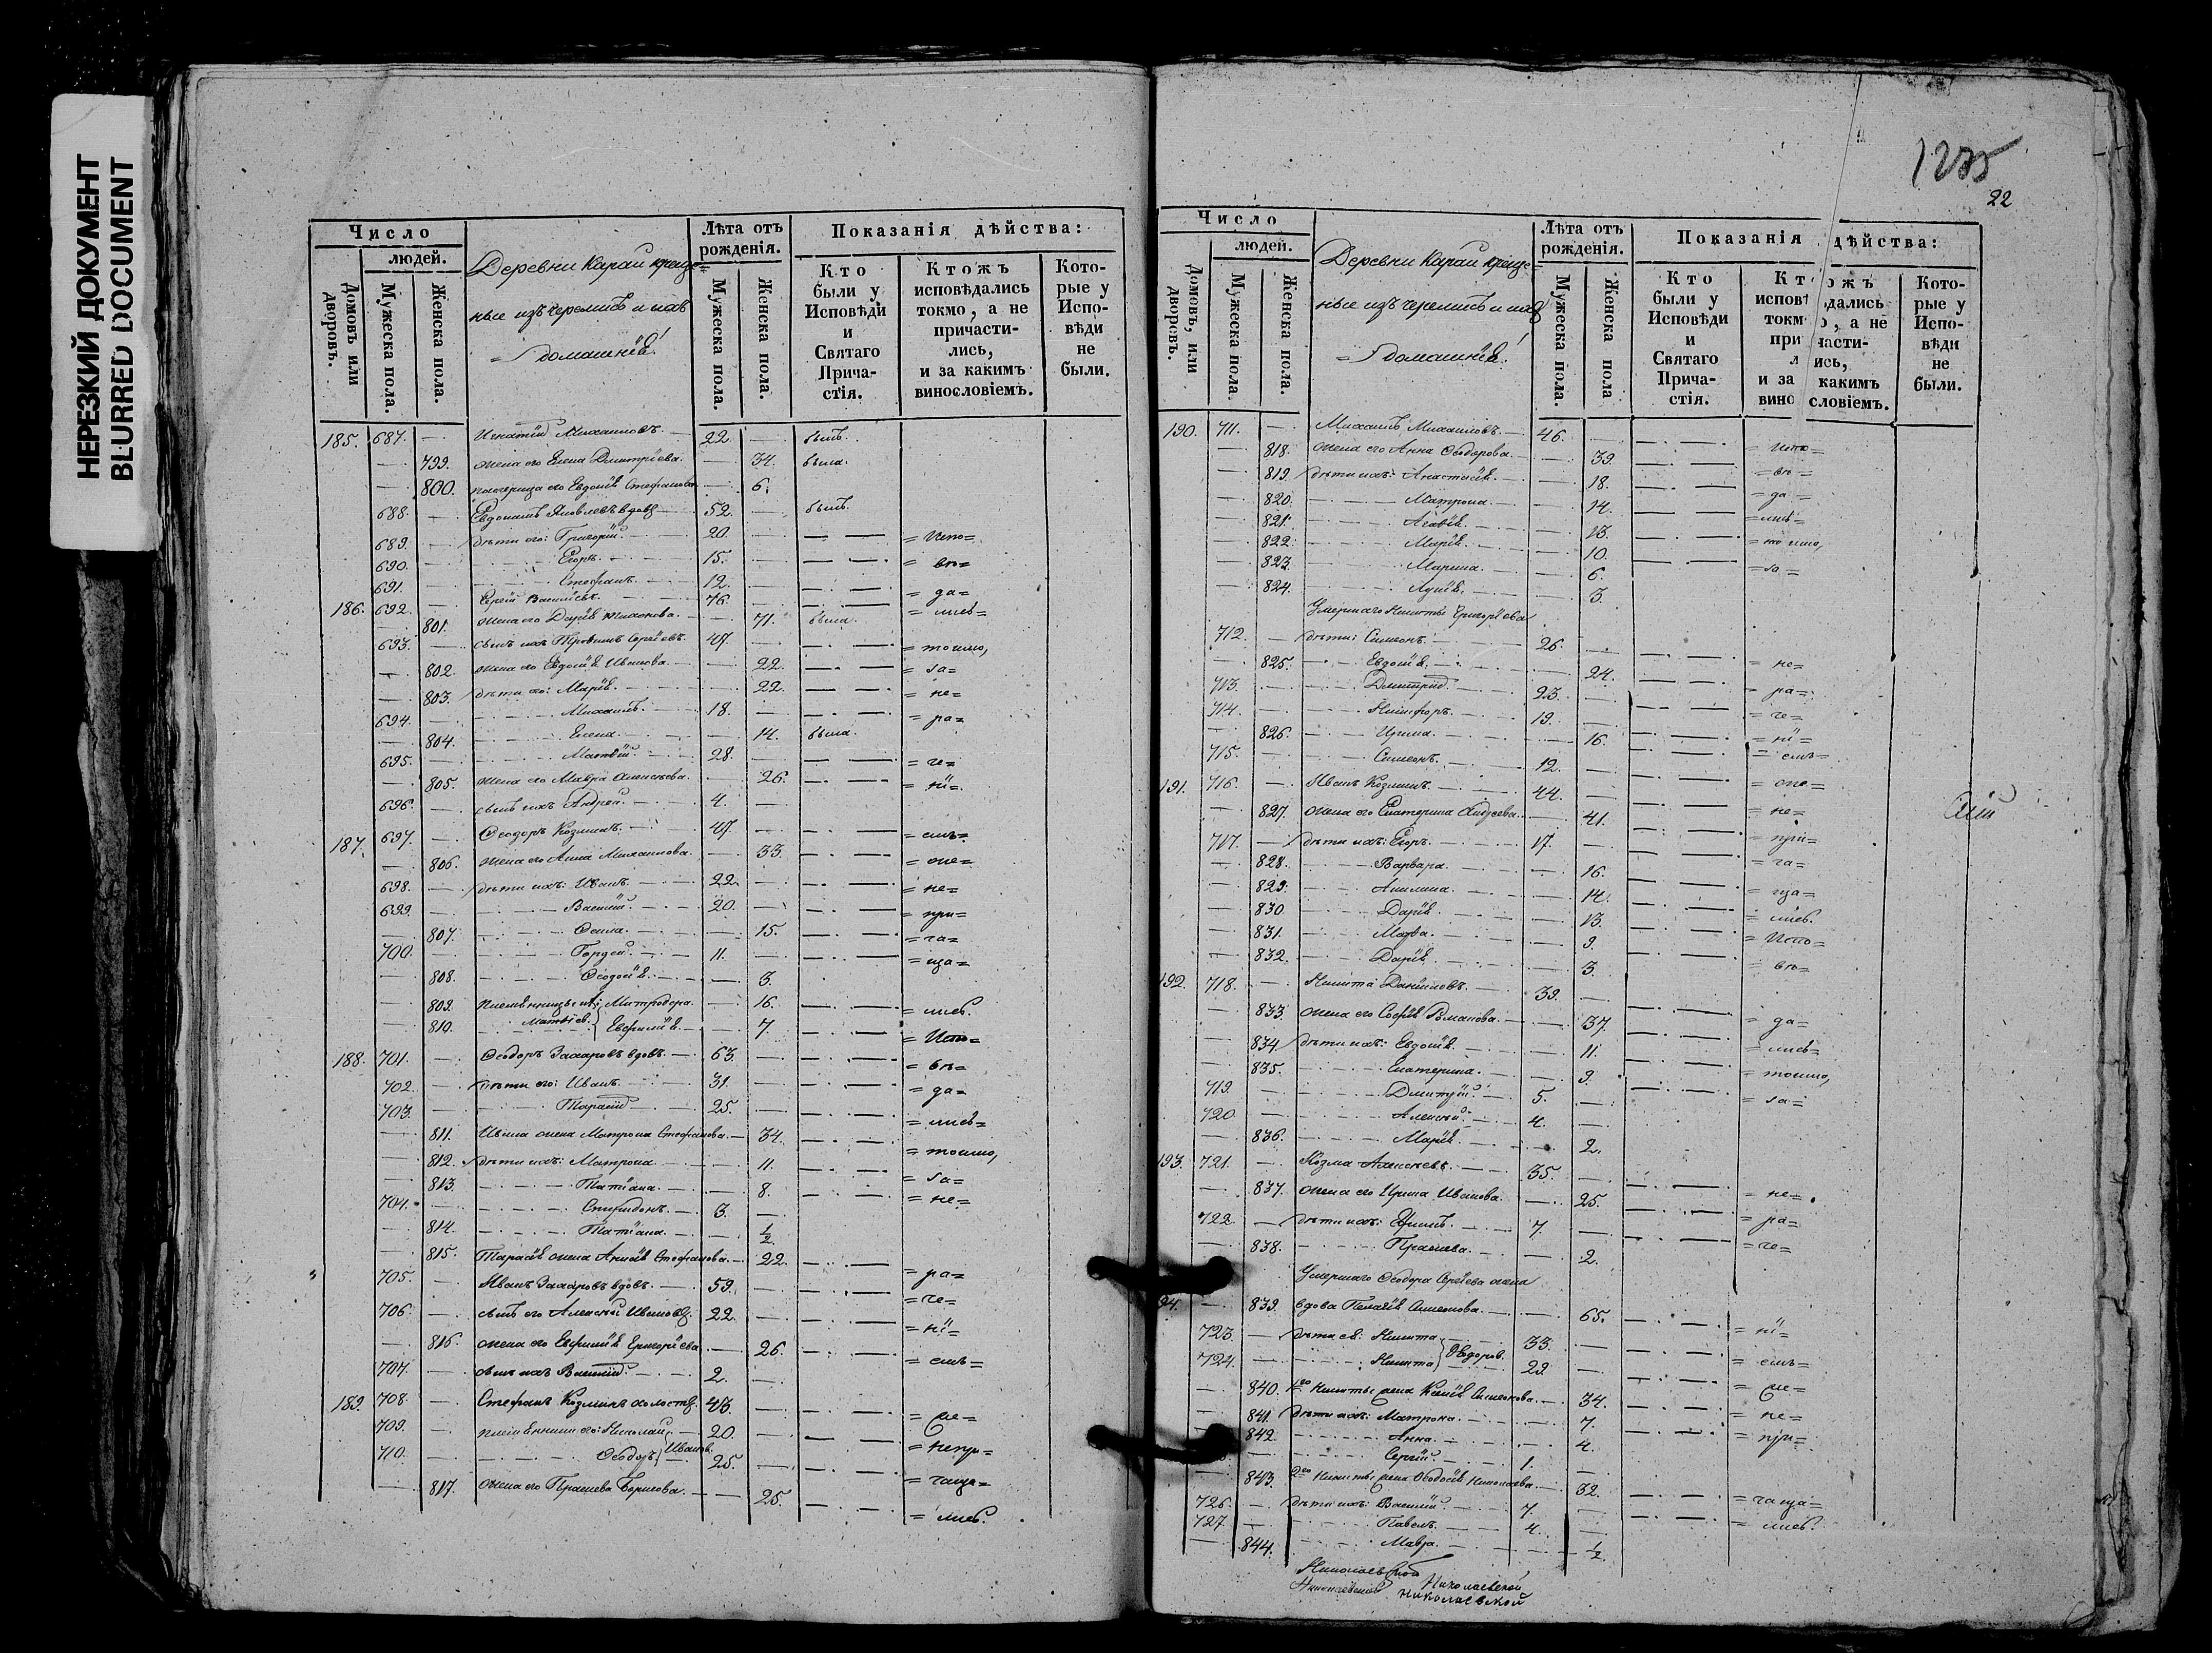 НЕРЕЗКИЙ ДОКУМЕНТ
BLURRED DOCUMENT
Число
людей.
Домовъ или дворовъ.
Мужеска пола.
Женска пола.
Деревни Караи креще=
ные изъ черемисъ и ихъ
домашнiе.
Лѣта отъ рожденія.
Мужеска пола.
Женска пола.
Показанія дѣйства:
Кто были у Исповѣди и Святаго Прича-стія.
Ктожъ исповѣдались токмо, а не причасти-лись, и за какимъ винословіемъ.
Кото-рые у Испо-вѣди не были.
185. 687. — Игнатій Михаиловъ. 22. — былъ.
— 799. жена его Елена Дмитріева. — 34. была.
— 800. его Евдокія Стефанова — 6.
688. — Яковлевъ вдовъ 52. — былъ.
689. — дѣти его: Григорій. 20. — = Испо=
690. — Егоръ. 15. — = вѣ=
691. — Стефанъ. 12. — = да=
186. 692. — Сергій Васильевъ. 76. — = лись=
— 801. жена его Дарія — 71. была.
693. — сынъ ихъ Трофимъ Сергѣевъ. 47. — = токмо,
— 802. жена его Евдокія Иванова. — 22. = за=
— 803. дѣти его: Марія. — 22. = не=
694. — Михаилъ. 18. — = ра=
— 804. Елена. — 14. была.
695. — Матвій. 28. — = че=
— 805. жена его Мавра Алексѣева. — 26. = ні=
696. — сынъ ихъ Андрей. 4. —
187. 697. — Ѳеодоръ Козминъ. 47. — = емъ=
— 806. жена его Анна Михаилова. — 33. = оне=
698. — дѣти ихъ: Иванъ. 22. — = не=
699. — Василій. 20. — = при=
— 807. Ѳекла. — 15. = ча=
700. — Гордей. 11. — = ща=
— 808. Ѳеодосія. — 3.
— 809. племянницы ея: Митродора — 16. = лись.
— 810. Матвіев. Евфимія. — 7. = Испо=
188. 701. — Ѳеодоръ Захаровъ вдовъ. 63. — = вѣ=
702. — дѣти его: Иванъ. 31. — = да=
703. — Тарасій 25. — = лись=
— 811. Ивана жена Матрона Стефанова. — 34. = токмо,
— 812. дѣти ихъ: Матрона — 11. = за=
— 813. Татіана. — 8. = не=
704. — Спиридонъ. 3. —
— 814. Татіана. — 1/2.
— 815. Тарасія жена Анисія Стефанова — 22. = ра=
705. — Иванъ Захаровъ вдовъ. 59. — = че=
706. — сынъ его Алексѣй Ивановъ 22. — = ні=
— 816. жена его Евфимія Григоріева — 26. = емъ=
707. — сынъ ихъ Василій. 2. —
189. 708. — Стефанъ Козминъ холостъ. 43. —
709. — племянники его: Николай 20. — = непри=
710. — Ѳеодоръ Иванов. 25. — = чаща=
— 817. жена его Прасковья Борисова. — 25. = лись.
1235
22
Число
людей.
Домовъ, или дворовъ.
Мужеска пола.
Женска пола.
Деревни Караи креще=
ные изъ черемисъ и ихъ
домашнiе.
Лѣта отъ рожденія.
Мужеска пола.
Женска пола
Показанія дѣйства:
Кто были у Исповѣди и Святаго Прича-стія.
Кт ожъ исповѣ дались токм о, а не при части- л ись, и за какимъ вино словіемъ.
Кото-рые у Испо-вѣди не были.
190. 711. — Михаилъ Михаиловъ. 46. — = Испо=
— 818. жена его Анна Ѳеодорова. — 39. = вѣ=
— 819. дѣти ихъ: Анастасія. — 18. = да=
— 820. Матрона. — 14. = лись=
— 821. Агафія. — 13.
— 822. Марія. — 10. = за=
— 823. Марина. — 6.
— 824. — 3.
Умершаго Никиты Григоріева
712. — дѣти: Симеонъ. 26. — = не=
— 825. Евдокія. — 24. = ра=
713. — Дмитрій. 23. — = че=
714. — Никифоръ. 19. — = ні=
— 826. Ирина. — 16. = емъ=
715. — Симеонъ. 12. —
191. 716. — Иванъ Козминъ. 44. — = оне=
— 827. жена его Екатерина Андреева. — 41. = не=
717. — дѣти ихъ: Егоръ. 17. — = при=
— 828. Варвара. — 16. = ча=
— 829. Акилина. — 14. = ща=
— 830. Дарія. — 13. = лись.
— 831. Марѳа. — 9. = Испо=
— 832. Дарія. — 3. = вѣ=
192. 718. — Никита Даниловъ. 39. —
— 833. жена его Софія Романова. — 37. = да=
— 834. дѣти ихъ: Евдокія. — 11. = лись=
— 835. Екатерина. — 9. = токмо,
719. — Дмитрій. 5. — = за=
720. — Алексѣй. 4. —
— 836. Марія. — 2.
193. 721. — Козма Алексѣевъ. 35. —
— 837. жена его Ирина Иванова. — 25. = не=
722. — дѣти ихъ: 7. — = ра=
— 838. Прасковья. — 2. = че=
Умершаго Ѳеодора Сергѣева жена
94. — 839. вдова Пелагія Симеонова. — 65. = ні=
723. — дѣти ея: Никита Ѳедоров. 33. — = емъ=
724. — Никита 29. —
— 840. 1го Никиты жена Ксенія Симеонова. — 34. = не=
— 841. дѣти ихъ: Матрона. — 7. = при=
— 842. Анна. — 4.
Сергій. 1. —
— 843. 2го Никиты жена Ѳеодосія Николаева. — 32. = чаща=
726. — дѣти ихъ: Василій. 7. — = лись.
727. — Павелъ. 4. —
— 844. Мавра. — 1/2.
Николаевской
Николаевской